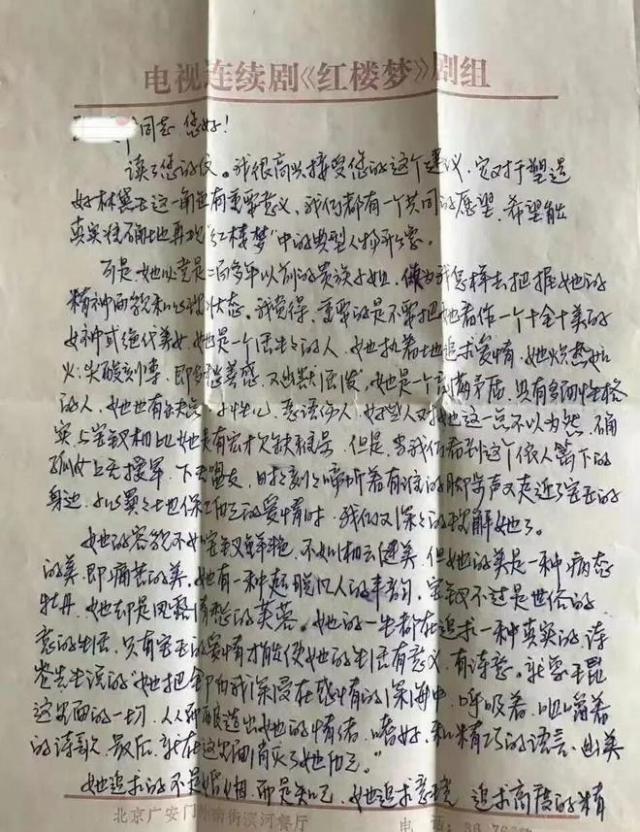 电视连续剧《红楼梦》剧组
同志 您好!
读了您的信。我很高兴接受您的这个建议,它对于塑造
好林黛玉这一角色有重要意义,我们都有一个共同的愿望,希望能
真实准确地再现“红楼梦”中的典型人物形象。
可是,她毕竟是二百多年以前的贵族小姐,我怎样去把握她的
精神面貌和心理状态。我觉得,重要的是不要把她看作一个十全十美的
女神或绝代美女,她是一个活生生的人,她执着地追求爱情,她炽热如
火;尖酸刻薄,即多愁善感,她是一个充满矛盾,具有多面性格
的人,她也有缺点,小性儿,恶语伤人,好些人对她这一点不以为然,确
实与宝钗相比她是有 欠缺 但是,当我们看到这个依人篱下的
孤女上无援军,下无盟友,时刻聆听着有谁的脚步声又走近了宝玉的
身边,小心翼翼地保卫自己的爱情时,我们又深深的理解她了。
她的容貌不如宝钗鲜艳,不如湘云健美,但她的美是一种病态
的美,即痛苦的美。她有一种超脱凡人的丰韵,宝钗不过是世俗的
牡丹,她却是风露清愁的芙蓉。她的一生都在追求一种真实的、诗
意的生活,只有宝玉的爱情才能使她的生活有意义,有诗意。就像王昆
仑先生说的“她把全部自我沉浸在感情的深海中,呼吸着,咀嚼着
这里面的一切,从 酿造出她的情绪、嗜好,和精巧的语言、幽美
的诗歌,最后,就在这里面消灭了她自己。”
她追求的不是婚姻,而是知己,她追求意境,追求高洁的精
北京广安门外南街滨河餐厅
电 话: